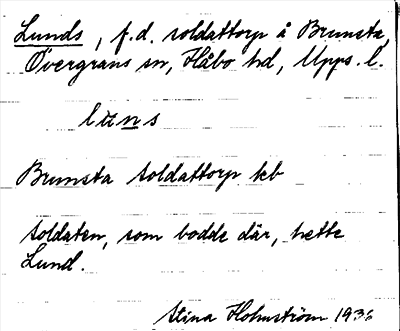 Lunds, f.d. soldattorp å Brunsta,
Övergrans sn, Håbo hd, Upps. l.
Brunsta soldattorp kb
soldaten, som bodde där, hette
Lund.
Stina Holmström 1936